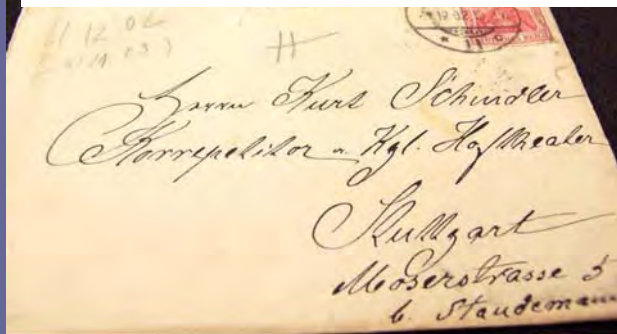 11 12 02
H
12.02
Herrn Kurt Schindler
Korrepetitor a. Kgl. Hoftheater
Stuttgart
Moserstrasse 5
b. Staudemann